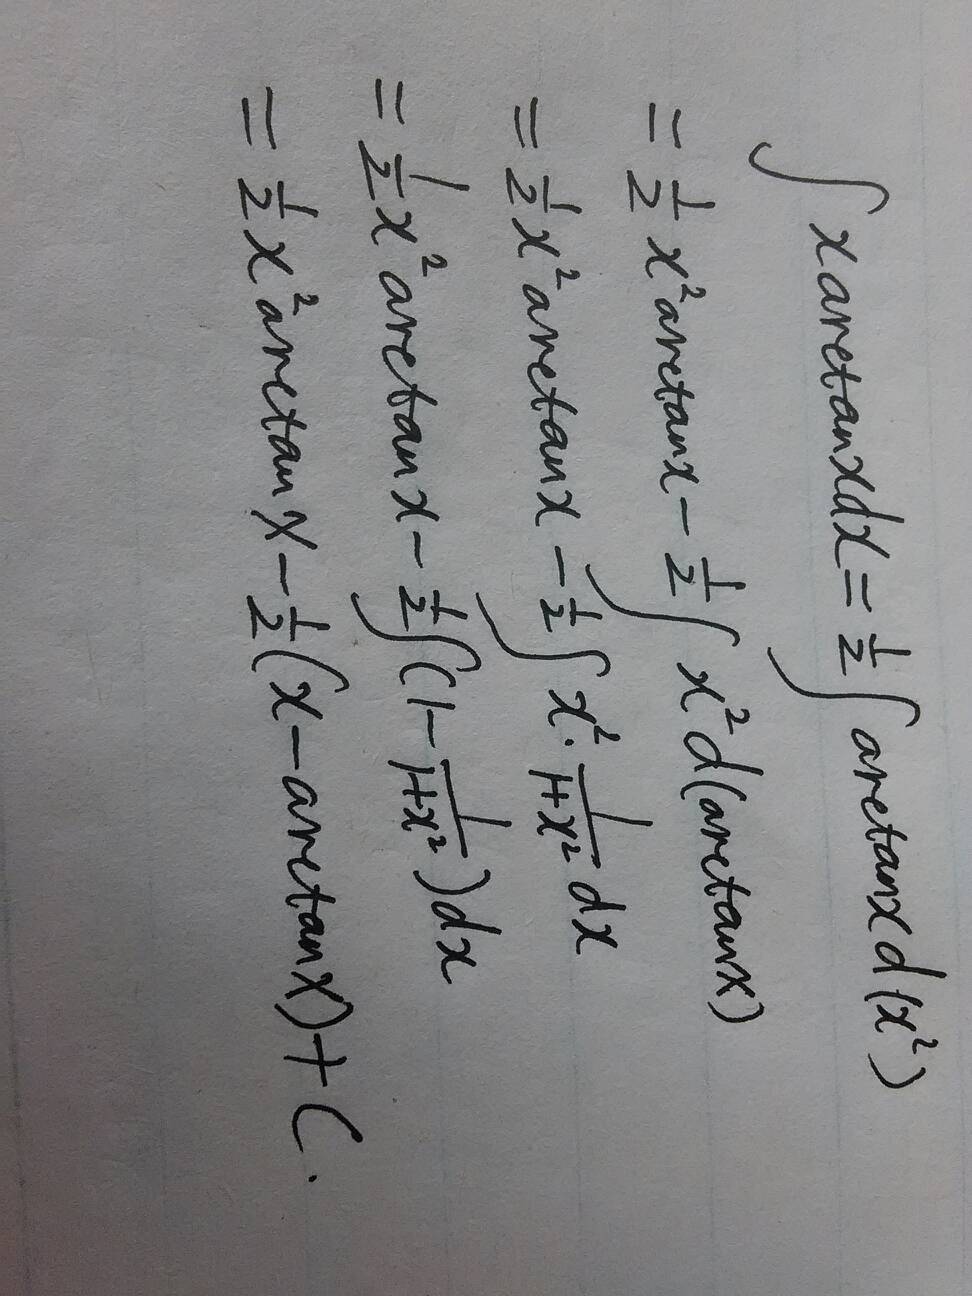 ∫xarctanxdx=½∫arctanxd(x²)
=½x²arctanx-½∫x²d(arctanx)
=½x²arctanx-½∫x²·1/(1+x²)dx
=½x²arctanx-½∫(1-1/(1+x²))dx
=½x²arctanx-½(x-arctanx)+C.